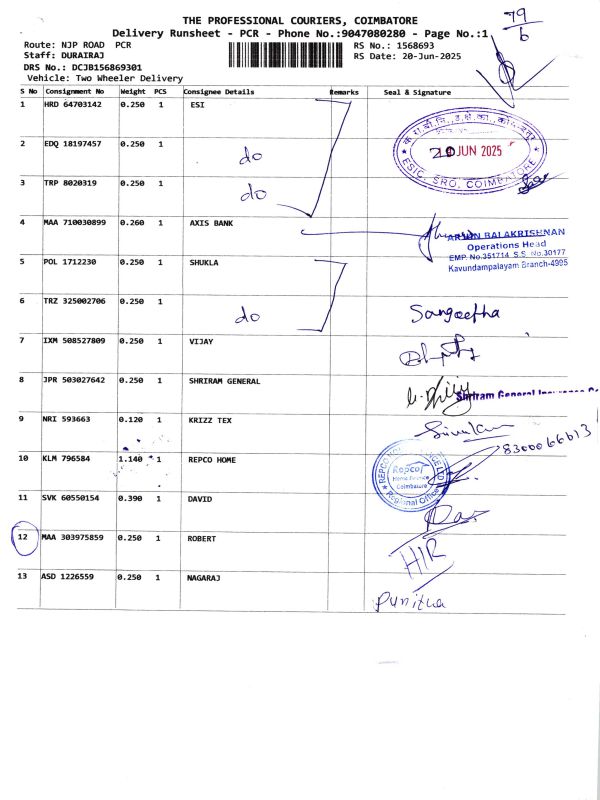 THE PROFESSIONAL COURIERS, COIMBATORE
79
6
Delivery Runsheet - PCR - Phone No.:9047080280 - Page No.:1
Route: NJP ROAD PCR
RS No.: 1568693
Staff: DURAIRAJ
RS Date: 20-Jun-2025
DRS No.: DCJB156869301
Vehicle: Two Wheeler Delivery
S No Consignment No Weight PCS Consignee Details Remarks Seal & Signature
1 HRD 64703142 0.250 1 ESI
20 JUN 2025
ESIC, SRO, COIMBATORE
2 EDQ 18197457 0.250 1 do
3 TRP 8020319 0.250 1 do
4 MAA 710030899 0.260 1 AXIS BANK
ARJUN BALAKRISHNAN
Operations Head
EMP. No.351714 S.S. No.30177
Kavundampalayam Branch-4995
5 POL 1712230 0.250 1 SHUKLA
6 TRZ 325002706 0.250 1 do Sangeetha
7 IXM 508527809 0.250 1 VIJAY
8 JPR 503027642 0.250 1 SHRIRAM GENERAL
Shriram General Insurance Co
9 NRI 593663 0.120 1 KRIZZ TEX
8300066613
10 KLM 796584 1.140 1 REPCO HOME
Repco
Home Finance
Coimbatore
Regional Office
11 SVK 60550154 0.390 1 DAVID
12 MAA 303975859 0.250 1 ROBERT
13 ASD 1226559 0.250 1 NAGARAJ
Punitha